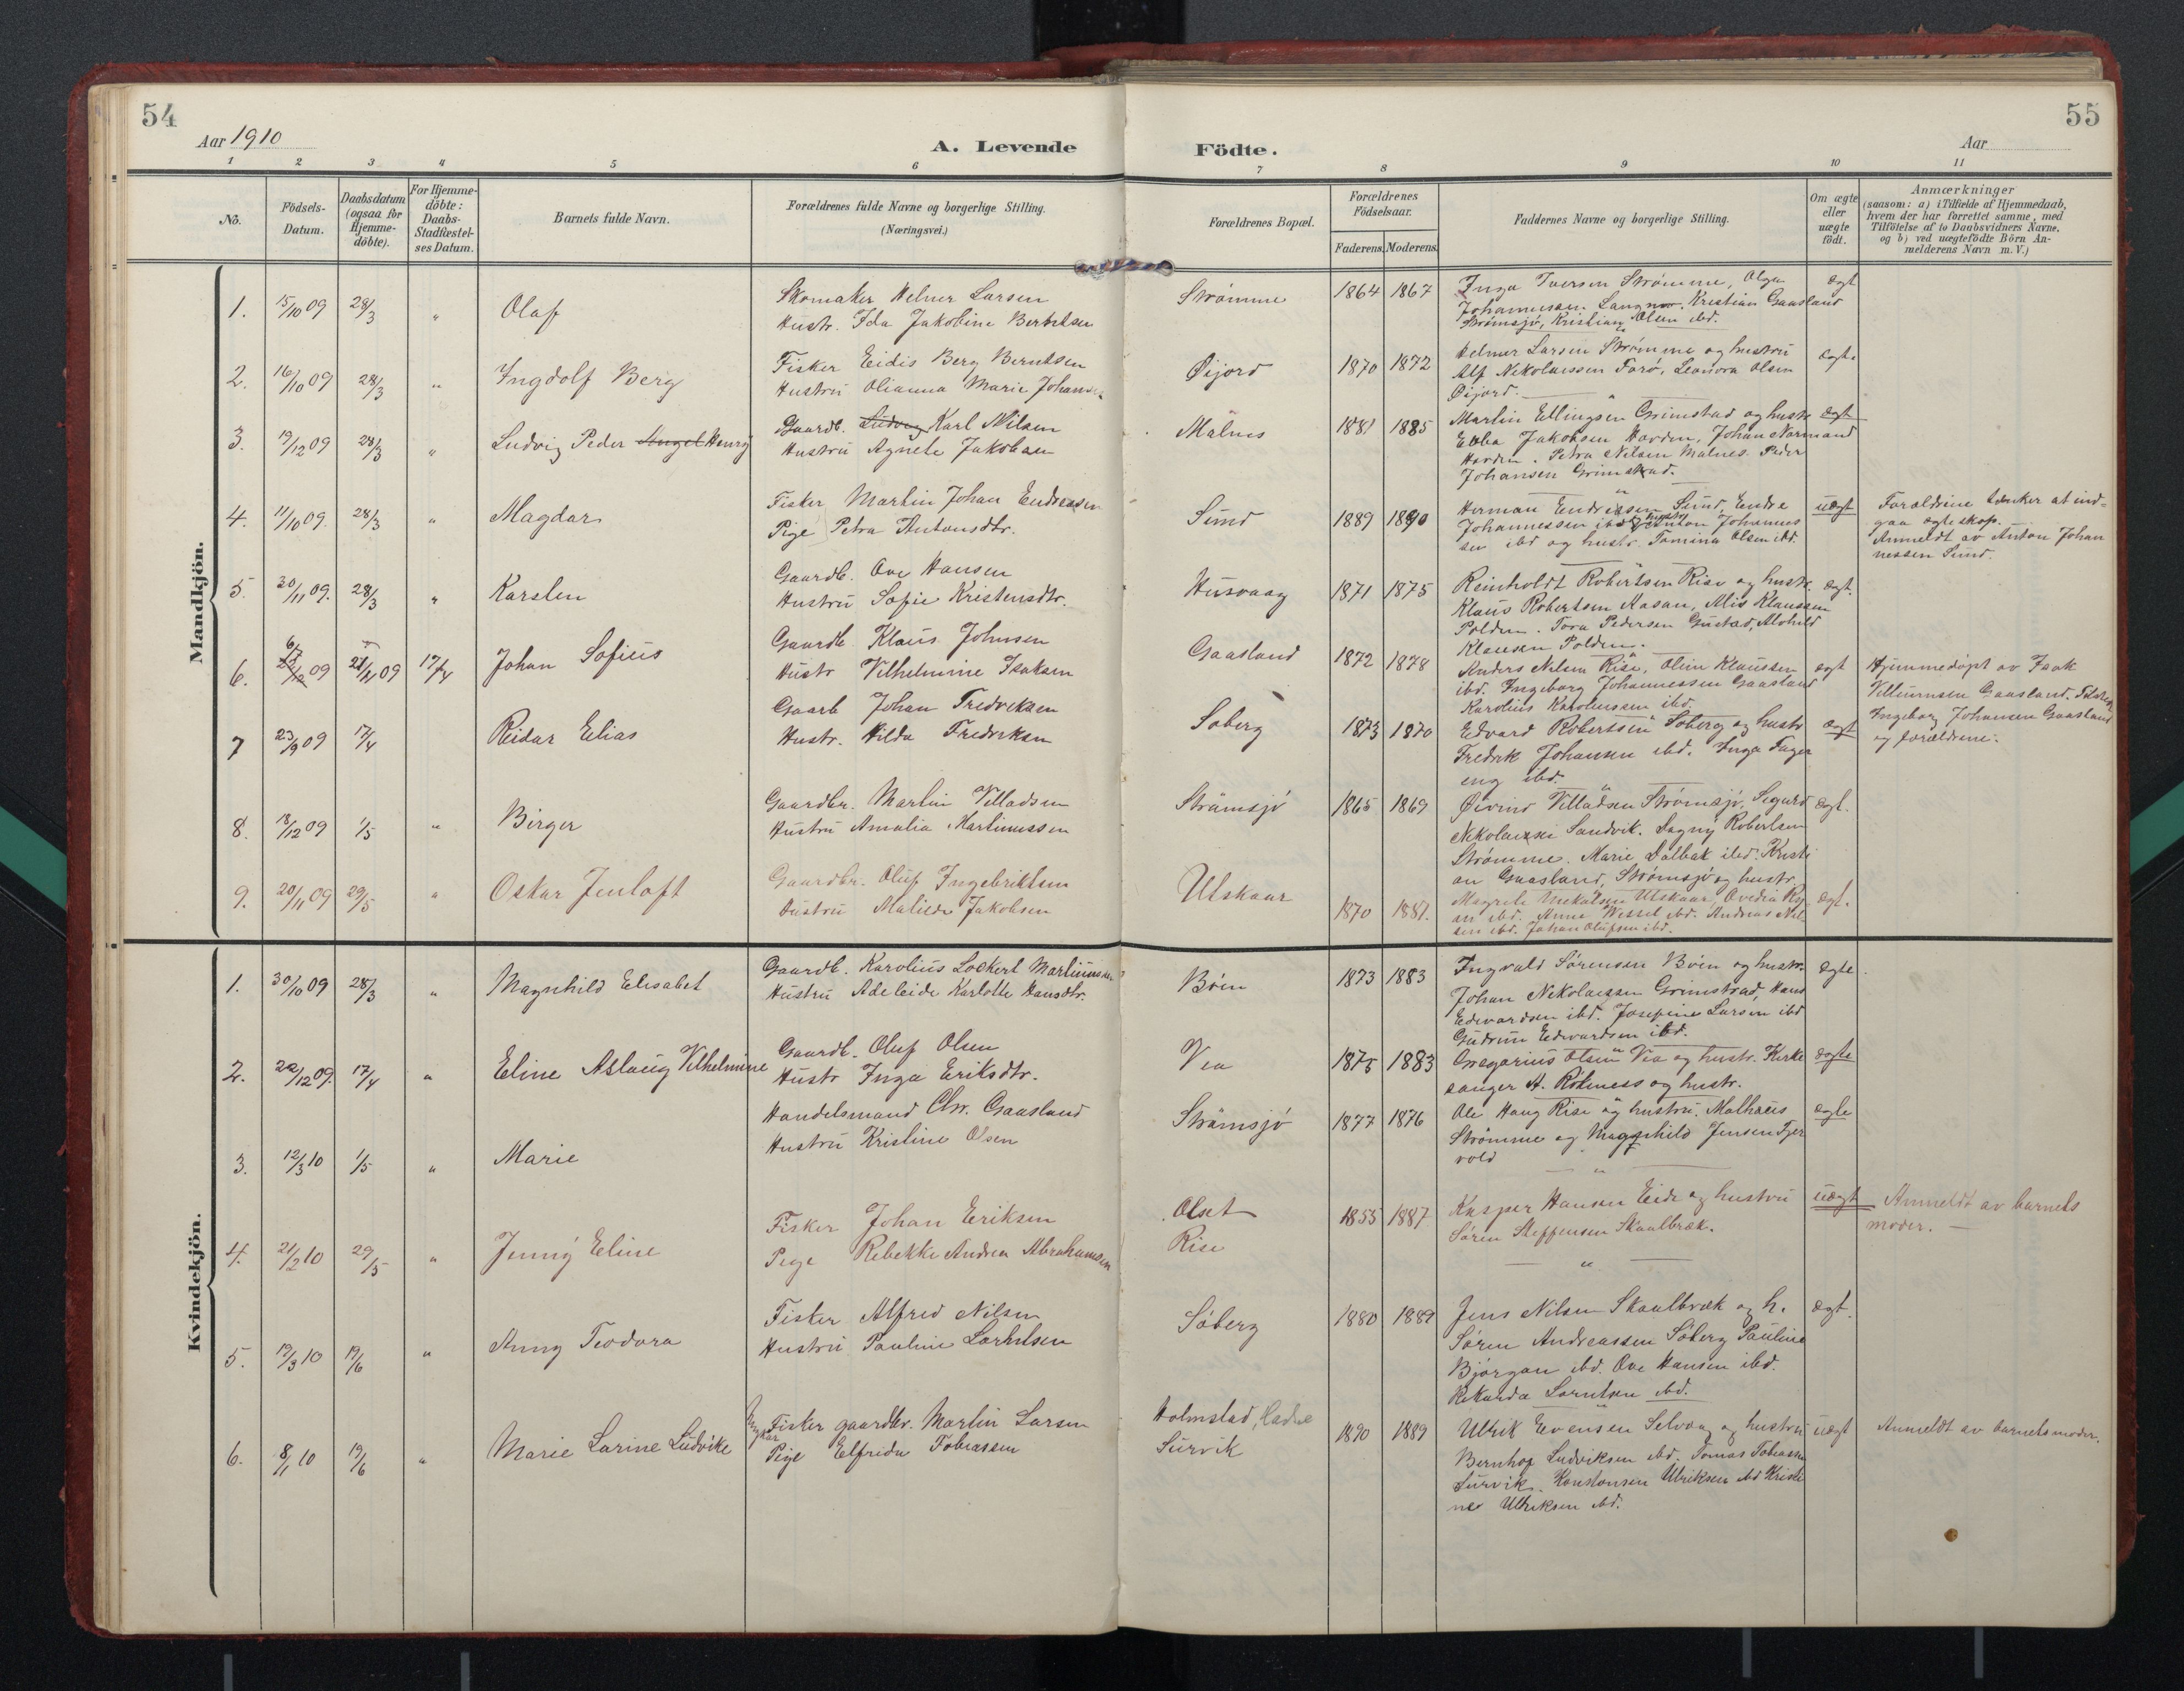 54
Aar 1910
A. Levende
Födte.
Aar
55
1 2 3 4 5 6 7 8 9 10 11
Nö.
Födsels-
Datum.
Daabsdatum
(ogsaa for
Hjemme-
döbte).
For Hjemme-
döbte:
Daabs-
Stadfæstel-
ses Datum.
Barnets fulde Navn.
Forældrenes fulde Navne og borgerlige Stilling.
(Næringsvei.)
Forældrenes Bopæl.
Forældrenes
Födselsaar.
Faderens. Moderens.
Faddernes Navne og borgerlige Stilling.
Om ægte
eller
uægte
födt.
Anmærkninger
(saasom: a) i Tilfælde af Hjemmedaab,
hvem der har forrettet samme, med
Tilföielse af to Daabsvidners Navne,
og b) ved uægtefödte Börn An-
melderens Navn m. V.)
Mandkjön.
1. 15/10 09 28/3 " Olaf
Skomaker Helmer Larsen
Hustr. Ida Jakobine Berntsen
Strømme 1864 1867
Inga Iversen Strømme, Olga
Johannesen Kristian Gaasland
Strømsjö, Kristiane Olsen ibd.
ægt
2. 16/10 09 28/3 " Ingdolf Berg
Fisker Eidis Berg Berntsen
Hustru Olianna Marie Johansen
Øijord 1870 1872
Helmer Larsen Strømme og hustru
Alf Nikolaissen Farø, Leonora Olsen
Øijord. "
ægt.
3. 19/12 09 28/3 " Ludvig Peder Angel Henry
Gaardb. Ludvig Karl Nilsen
Hustru Agnete Jakobsen
Målnes 1881 1885
Martin Ellingsen Grimstad og hustr
Ebba Jakobsen Havden, Johan Normand
Havden. Petra Nilsen Malnes. Peder
Johansen Grimstad.
ægt
4. 11/10 09. 28/3 " Magdar
Fisker Martin Johan Endresen
Pige Petra Antonsdtr.
Sund 1889 1890
Herman Endresen Sund, Endre
Johannessen ibd og hustru Anton Johannes
sen ibd og hustr. Tomina Olsen ibd.
uægt
Foraldrene tænker at ind-
gaa ægteskap.
Anmeldt av Anton Johan
nessen Sund.
5. 30/11 09. 28/3 " Karsten
Gaardb. Ove Hansen
Hustru Sofie Kristensdtr.
Husvaag 1871 1875
Reinholdt Robertsen Rise og hustr.
Klaus Robertsen Aasan, Alis Klaussen
Polden. Tora Pedersen Gustad, Alvhild
Klausen Polden.
ægt.
6. 6/12 09 21/11 09 17/4 Johan Sofius
Gaardb. Klaus Johnsen
Hustr Vilhelmine Isaksen
Gaasland 1872 1878
Anders Nilsen Rise, Oline Klaussen
ibd. Ingeborg Johannessen Gaasland
Karolius Karolinssen ibd.
ægt
Hjemmedøpt av Isak
Gaasland.
Ingeborg Johansen Gaasland
og forældrene.
7 23/9 09 17/4 Reidar Elias
Gaarb Johan Fredriksen
Hustr. Hilda Fredriksen
Søberg 1873 1870
Edvard Robertsen Søberg og hustr
Fredrik Johansen ibd. Inga Fager
eng ibd.
ægt
8. 18/12 09 1/5 " Birger
Gaardbr. Martin Villadsen
Hustru Amalia Martinussen
Strømsjö 1865 1869
Øivind Villadsen Strømsjø, Sigurd
Nikolaisen Sandvik. Dagny Robertsen
Strømme. Marie Dalbak ibd. Kristi
an Gaasland, Strømsjø og hustr.
ægt.
9. 20/11 09 29/5 " Oskar Jenloft
Gaardbr. Oluf Ingebriktsen
Hustru Malide Jakobsen
Utskaar 1870 1881.
Magrete Utskaar, Ovedia
ibd. Anna Wessel ibd. Andreas Nil
sen ibd. Johan Olufsen ibd.
ægt.
Kvindekjön.
1. 30/10 09 28/3 " Magnhild Elisabet
Gaardb. Karolius Lockert Martinussen
Hustru Adeleide Karlotte Hansdtr.
Bøen 1873 1883
Ingvald Sørensen Bøen og hustr.
Johan Nikolaissen Grimstad, Hans
Edwardsen ibd. Josefine Larsen ibd
Gudrun Edwardsen ibd.
ægte.
2. 22/12 09. 17/4 " Eline Aslaug Vilhelmine
Gaardb. Oluf Olsen
Hustr Inga Eriksdtr.
Vea 1875 1883
Gregorius Olsen Vea og hustr. Kirke
sanger A. Røkenes og hustr.
ægte
3. 12/3 10 1/5 " Marie
Handelsmand Chr. Gaasland
Hustru Kristine Olsen
Strømsjö 1877 1876
Ole Haug Rise og hustru. Mathæus
Strømme og Magnhild Jensen Tjer
vold "
ægte
4. 21/2 10 29/5 " Jenny Eline
Fisker Johan Eriksen
Pige Rebekke Andrea Abrahamsen
Olset
Rise
1855 1887
Kasper Hansen Eide og hustru
Søren Steffensen Skaalbræk.
"
uægt
Anmeldt av barnets
moder.
5. 12/3 10 19/6 " Anny Teodora
Fisker Alfred Nilsen
Hustru Pauline Lorentsen
Søberg 1880 1889
Jens Nilsen Skaalbræk og h.
Søren Andreassen Søberg Pauline
Bjørgan ibd. Ove Hansen ibd.
Rikarda Lorentsen ibd.
ægt.
6. 8/1 10 19/6 " Marie Larine Ludvike
Ungkar Fisker gaardbr. Martin Larsen
Pige Elfrida Tobiassen
Holmstad, Hadsel
Survik
1890 1889
Ulrik Evensen Selvaag og hustru
Bernhof Ludviksen ibd. Tomas Tobiassen
Survik. Konstanse Ulriksen ibd Kristi
ne Ulriksen ibd.
uægt
Anmeldt av barnets moder.